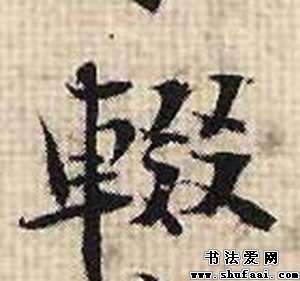 輟
书法爱网
www.shufaai.com